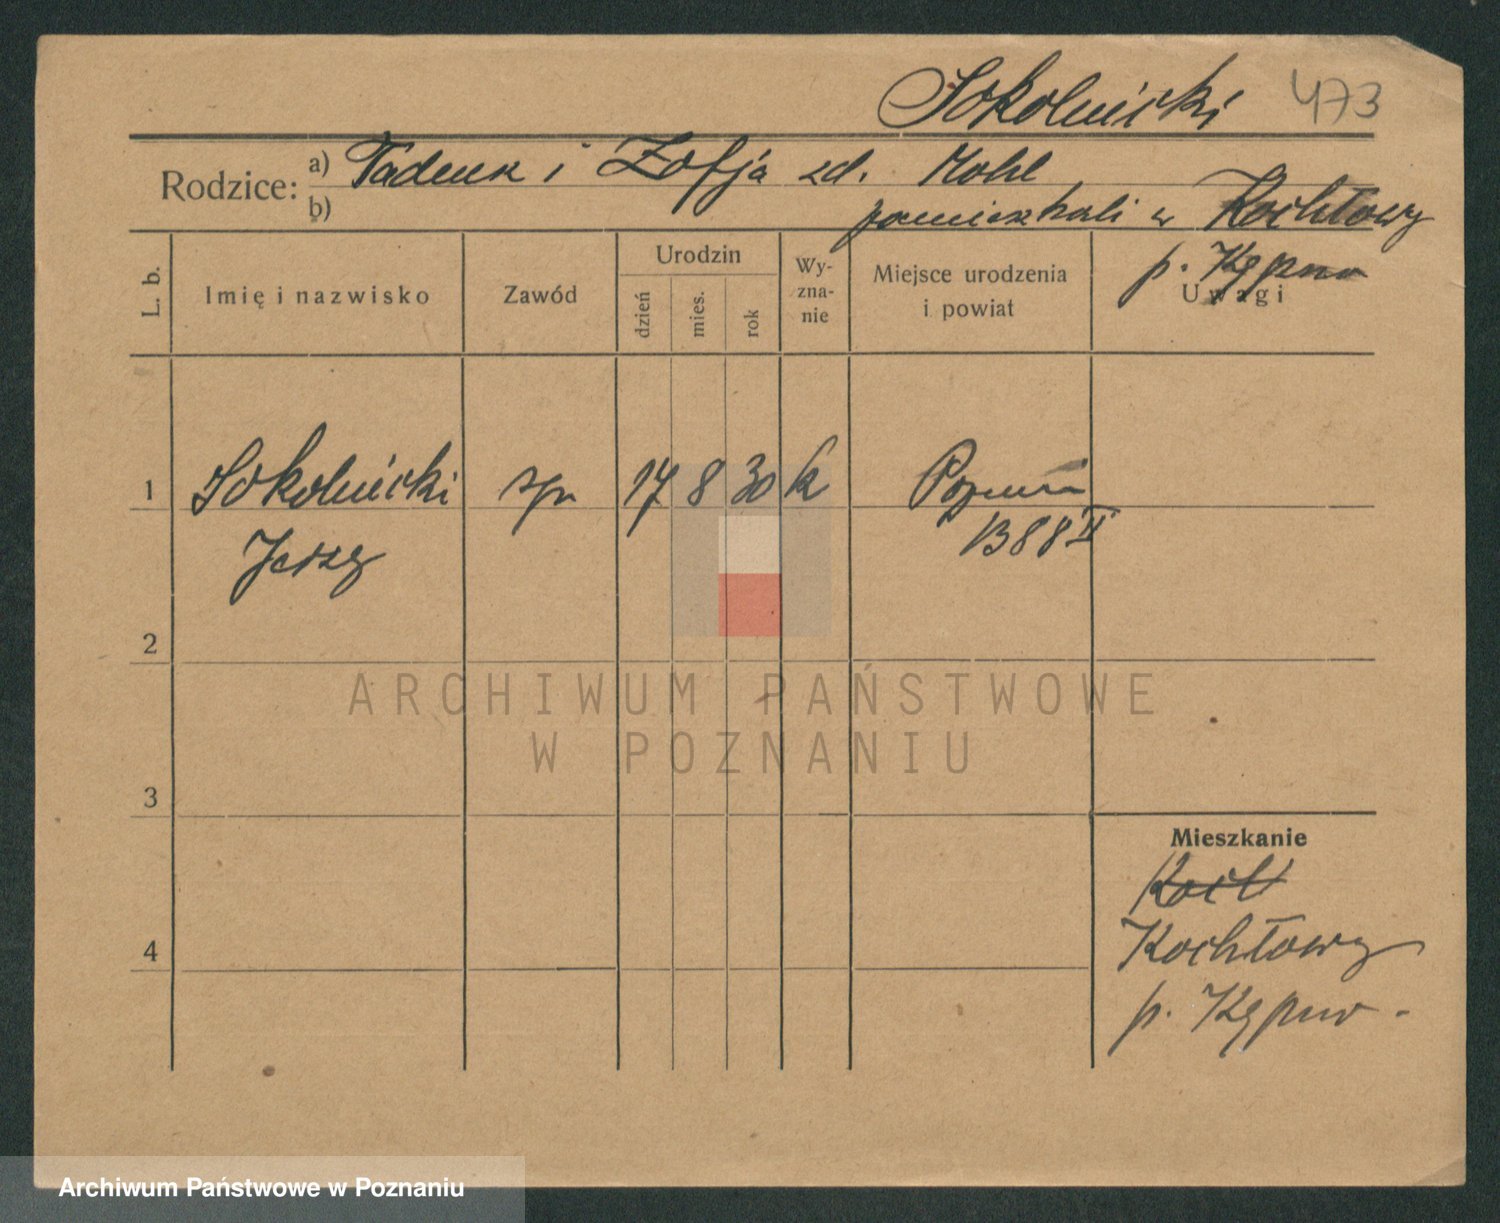 Sokolnicki 473
Rodzice: a) Tadeusz i Zofja zd. Mohl
b) zamieszkali w Kochłowy
p. Kępno
L. b. Imię i nazwisko Zawód Urodzin dzień mies. rok Wy-zna-nie Miejsce urodzenia i powiat Uwagi
1 Sokolnicki 17 8 30 k Poznań
Jerzy 1388 II
2
ARCHIWUM PAŃSTWOWE
W POZNANIU
3
Mieszkanie
Kochłowy
4
p. Kępno.
Archiwum Państwowe w Poznaniu